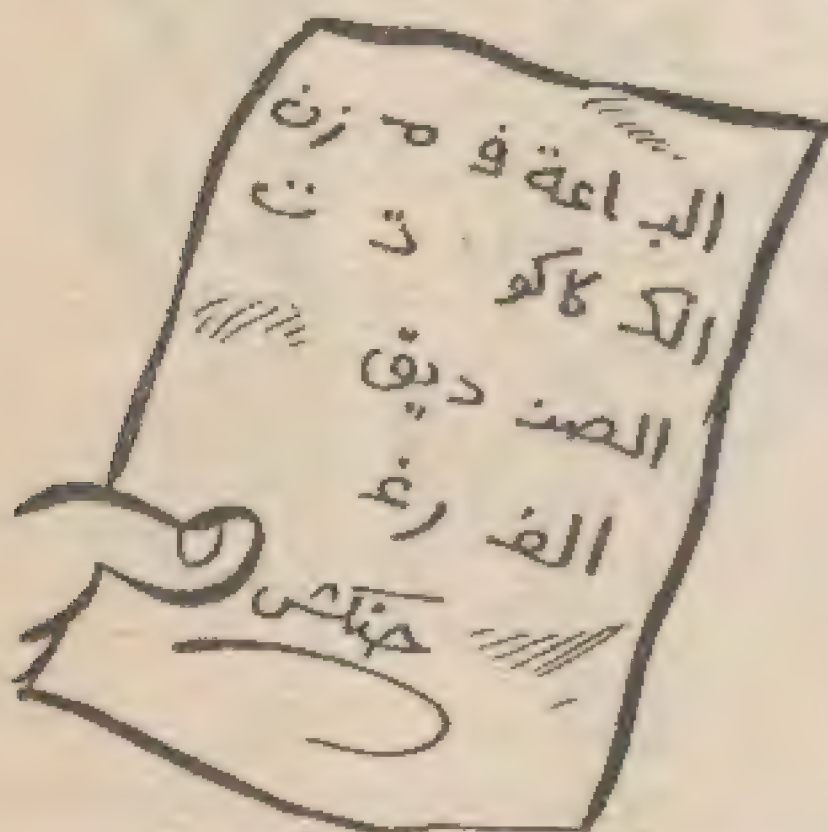 البـ اعة فـ مـ زن
الكـ كاكو تـ ت
الصنـ ديق
الفـ رغـ
حنكش